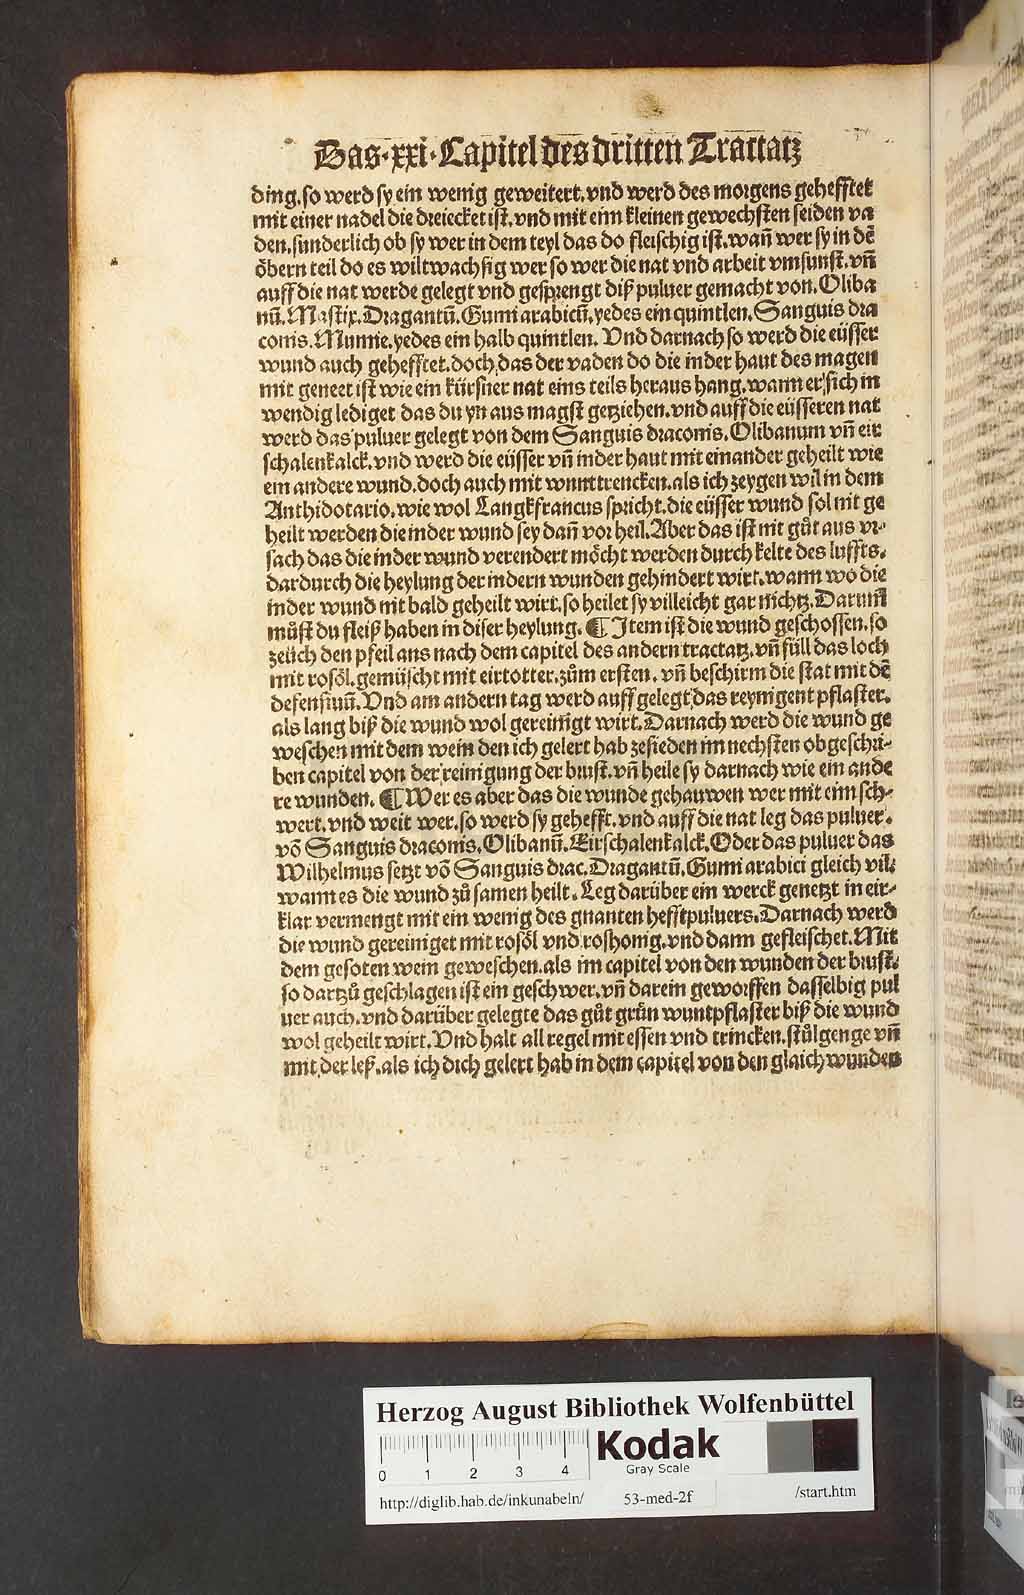 Das·xxi·Capitel des dritten Tractatz
ding. so werd sy ein wenig geweitert. vnd werd des morgens gehefftet
mit einer nadel die dreiecket ist. vnd mit eim kleinen gewechsten seiden va
den. sunderlich ob sy wer in dem teyl das do fleischig ist. wañ wer sy in dē
öbern teil do es wiltwachsig wer so wer die nat vnd arbeit vmsunst. vñ
auff die nat werde gelegt vnd gesprengt diß puluer gemacht von. Oliba
nū. Mastix. Dragantū. Gumi arabicū. yedes ein quintlen. Sanguis dra
conis. Munne. yedes ein halb quintlen. Vnd darnach so werd die eüsser
wund auch gehefftet. doch das der vaden do die inder haut des magen
mit geneet ist wie ein kürsner nat eins teils heraus hang. wann er sich in
wendig lediget das du yn aus magst getziehen. vnd auff die eüsseren nat
werd das puluer gelegt von dem Sanguis draconis. Olibanum vñ eir
schalenkalck. vnd werd die eüsser vñ inder haut mit einander geheilt wie
ein andere wund. doch auch mit wunttrencken. als ich zeygen wil in dem
Anthidotario. wie wol Langkfrancus spricht. die eüsser wund sol nit ge
heilt werden die inder wund sey dañ vor heil. Aber das ist nit gůt aus vr-
sach das die inder wund verendert möcht werden durch kelte des luffts.
dardurch die heylung der indern wunden gehindert wirt. wann wo die
inder wund nit bald geheilt wirt. so heilet sy villeicht gar nichtz. Darum̃
můst du fleiß haben in diser heylung. ¶ Item ist die wund geschossen. so
zeüch den pfeil aus nach dem capitel des andern tractatz. vñ füll das loch
mit rosöl. gemüscht mit eirtotter. zům ersten. vñ beschirm die stat mit dē
defensiuū. Vnd am andern tag werd auff gelegt das reynigent pflaster.
als lang biß die wund wol gereinigt wirt. Darnach werd die wund ge
weschen mit dem wein den ich gelert hab zesieden im nechsten obgeschri-
ben capitel von der reinigung der brust. vñ heile sy darnach wie ein ande
re wunden. ¶ Wer es aber das die wunde gehauwen wer mit eim sch-
wert. vnd weit wer. so werd sy gehefft. vnd auff die nat leg das puluer.
vō Sanguis draconis. Olibanū. Eirschalenkalck. Oder das puluer das
Wilhelmus setzt vō Sanguis drac. Dragantū. Gumi arabici gleich vil.
wann es die wund zů samen heilt. Leg darüber ein werck genetzt in eir-
klar vermengt mit ein wenig des gnanten hefftpuluers. Darnach werd
die wund gereiniget mit rosöl vnd roshonig. vnd dann gefleischet. Mit
dem gesoten wein geweschen. als im capitel von den wunden der brust.
so dartzů geschlagen ist ein geschwer. vñ darein geworffen dasselbig pul
uer auch. vnd darüber gelegte das gůt grün wuntpflaster biß die wund
wol geheilt wirt. Vnd halt all regel mit essen vnd trincken. stůlgenge vñ
mit der leß. als ich dich gelert hab in dem capitel von den gleich wunden
Herzog August Bibliothek Wolfenbüttel
0 1 2 3 4
Kodak
Gray Scale
http://diglib.hab.de/inkunabeln/ 53-med-2f /start.htm